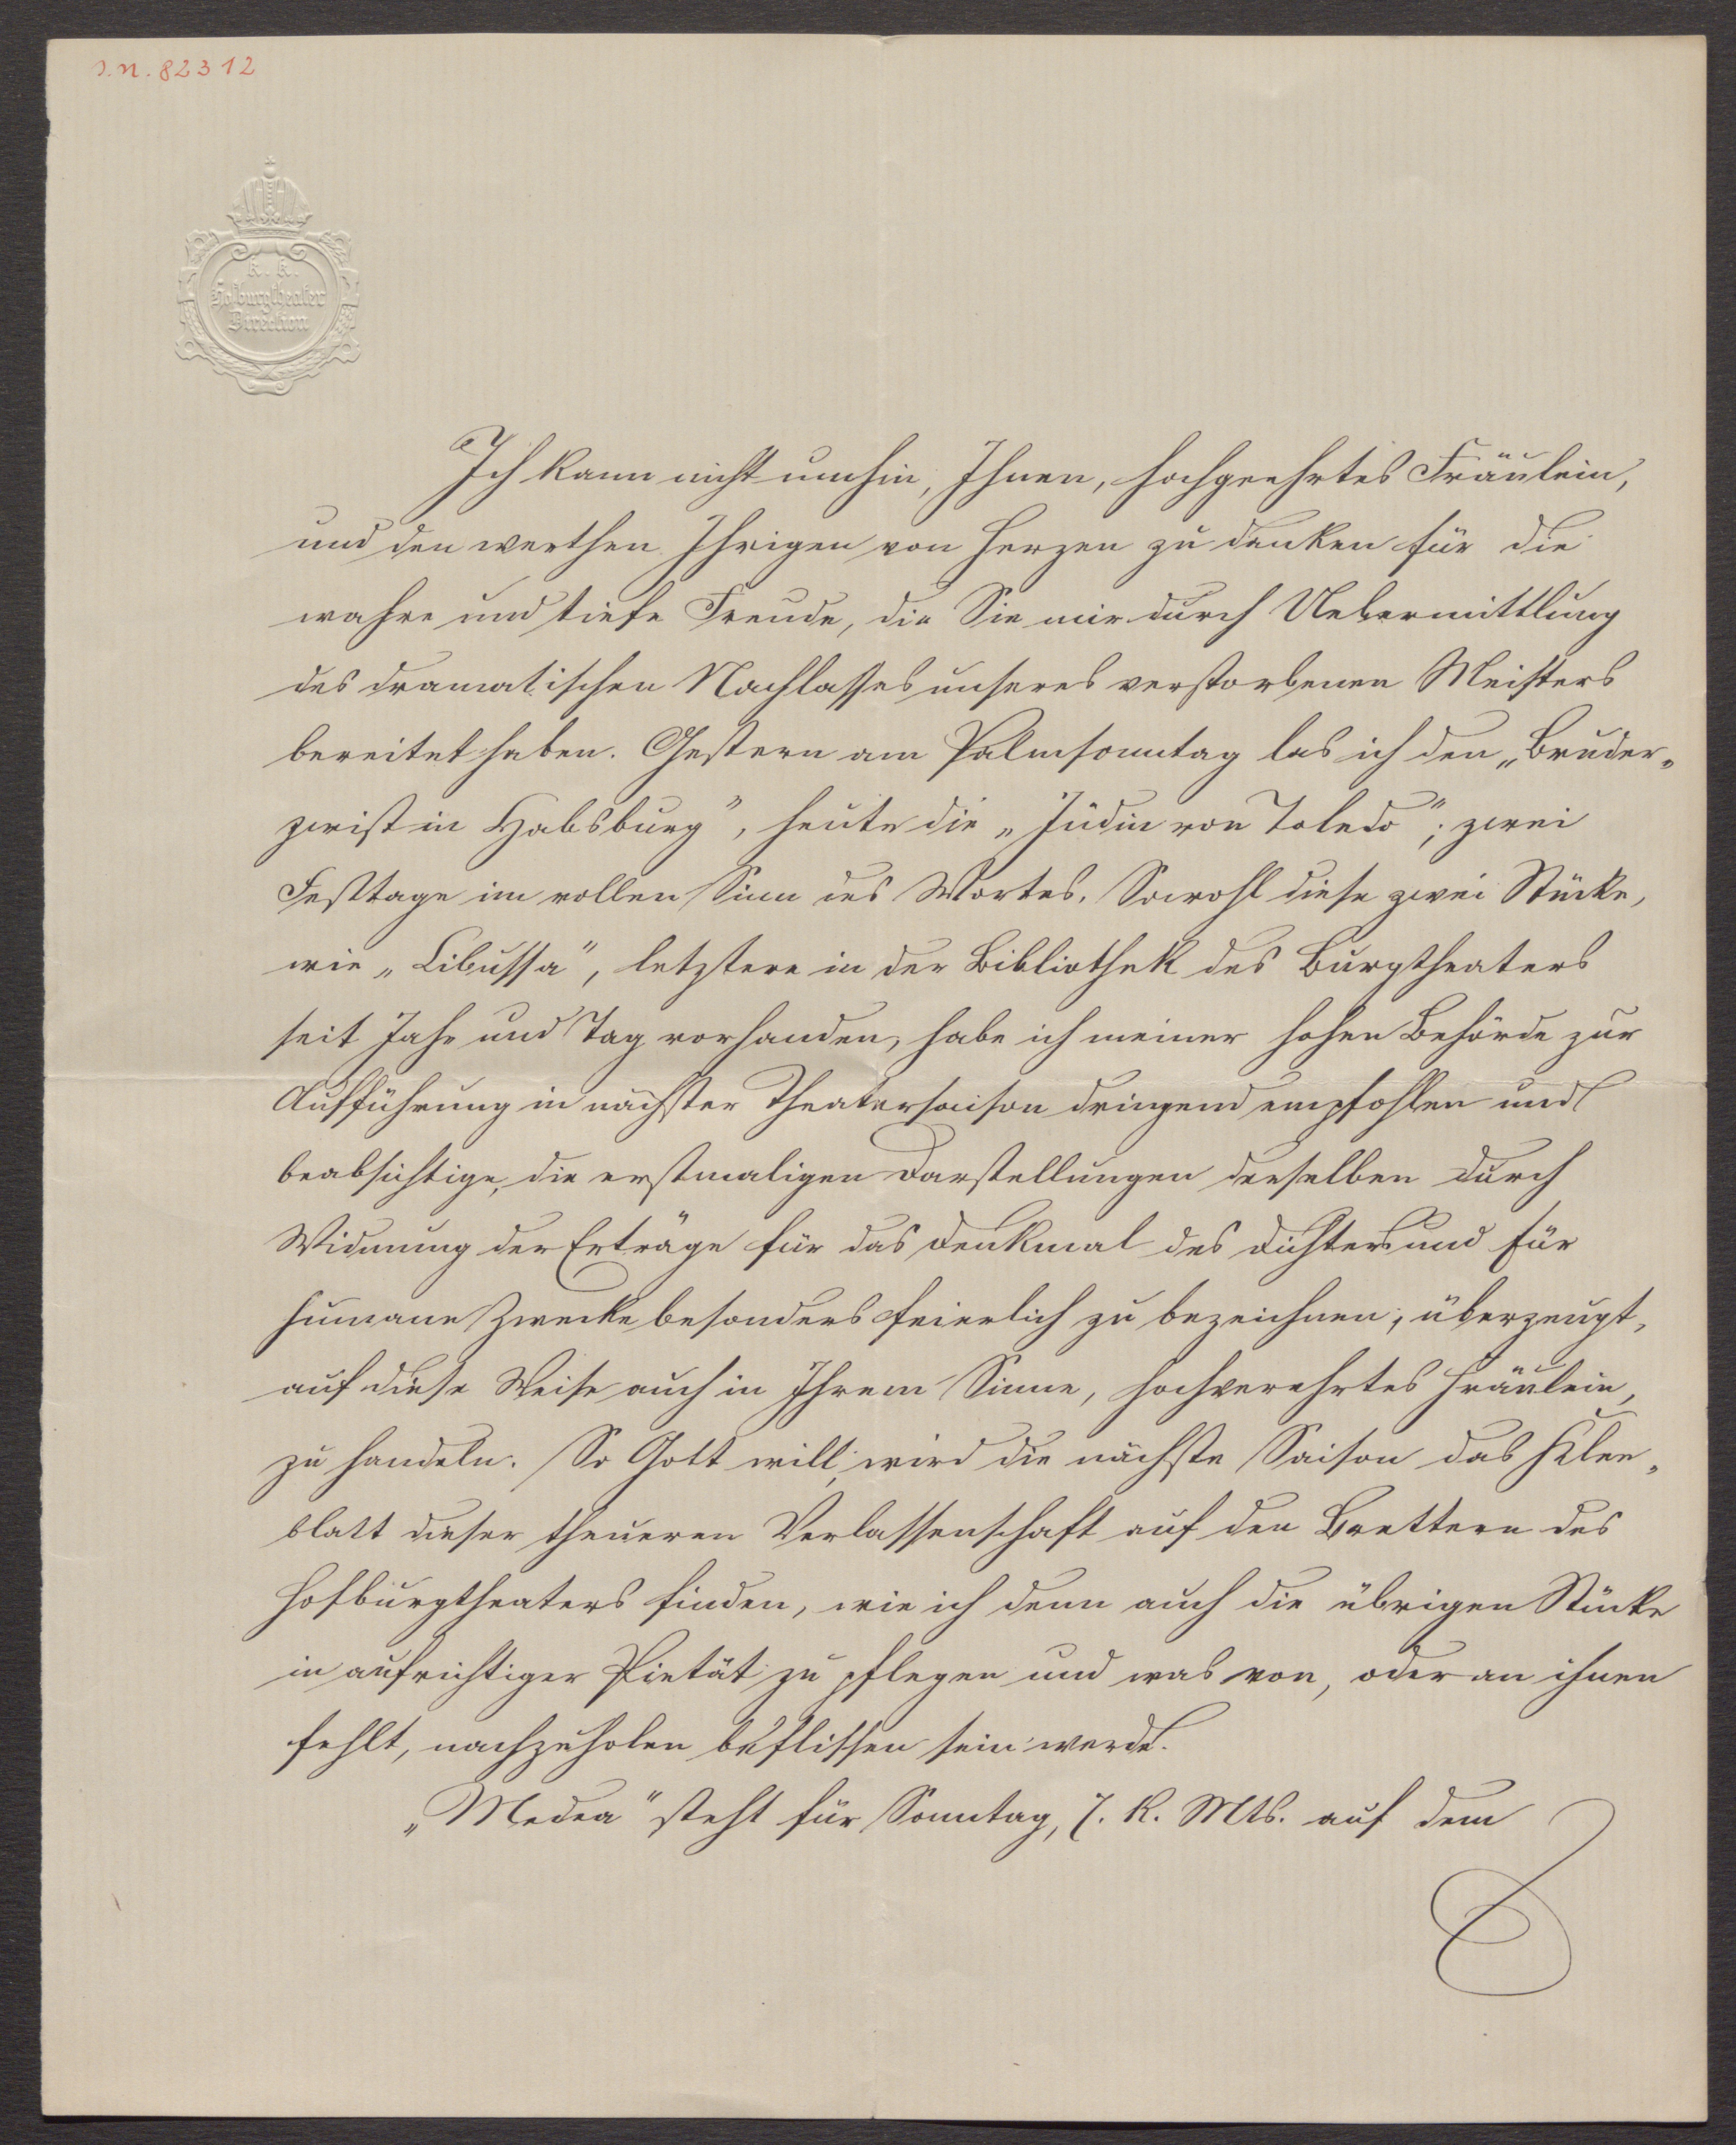 J.N. 82312
K. K.
Hofburgtheater
Direction
Ich kann nicht umhin, Ihnen, hochgeehrtes Fräulein,
und den werthen Ihrigen von Herzen zu danken für die
wahre und tiefe Freude, die Sie mir durch Uebermittlung
des dramatischen Nachlasses unseres verstorbenen Meisters
bereitet haben. Gestern am Palmsonntag las ich den „Bruder-
zwist in Habsburg", heute die „Jüdin von Toledo"; zwei
Festtage im vollen Sinn des Wortes. Sowohl diese zwei Stücke,
wie „Libussa", letztere in der Bibliothek des Burgtheaters
seit Jahr und Tag vorhanden, habe ich meiner hohen Behörde zur
Aufführung in nächster Theatersaison dringend empfohlen und
beabsichtige, die erstmaligen Darstellungen derselben durch
Widmung der Erträge für das Denkmal des Dichters und für
humane Zwecke besonders feierlich zu bezeichnen; überzeugt,
auf diese Weise auch in Ihrem Sinne, hochverehrtes Fräulein,
zu handeln. So Gott will, wird die nächste Saison das Klee-
blatt dieser theueren Verlassenschaft auf den Brettern des
Hofburgtheaters finden, wie ich denn auch die übrigen Stücke
in aufrichtiger Pietät zu pflegen und was von, oder an ihnen
fehlt, nachzuholen beflissen sein werde.
„Medea" steht für Sonntag, 7. k. Mts. auf dem